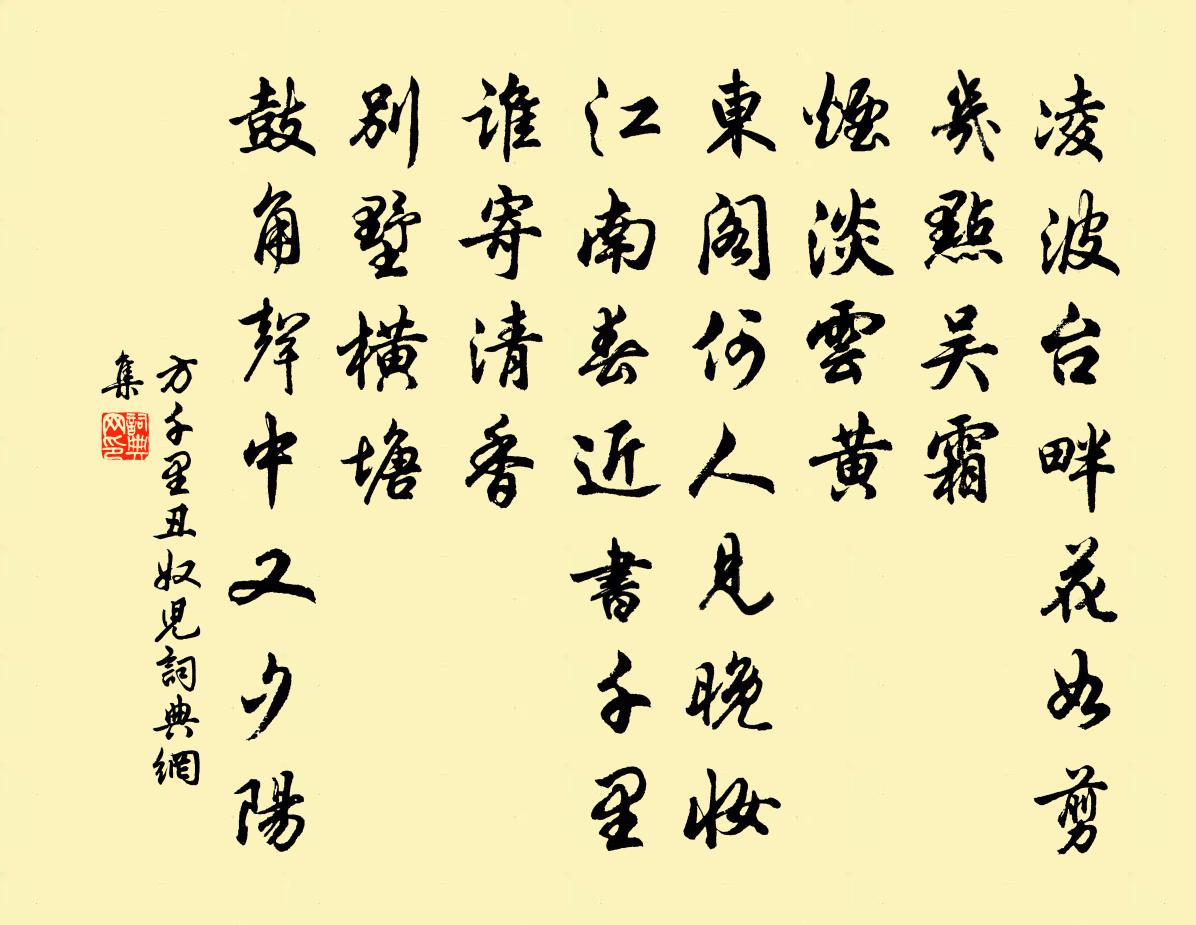 凌波台畔花如剪
幾點吳霜
煙淡雲黃
東閣何人見晚妝
江南春近書千里
誰寄清香
別墅橫塘
鼓角聲中又夕陽
方千里丑奴兒詞典網
集
詞典
网印